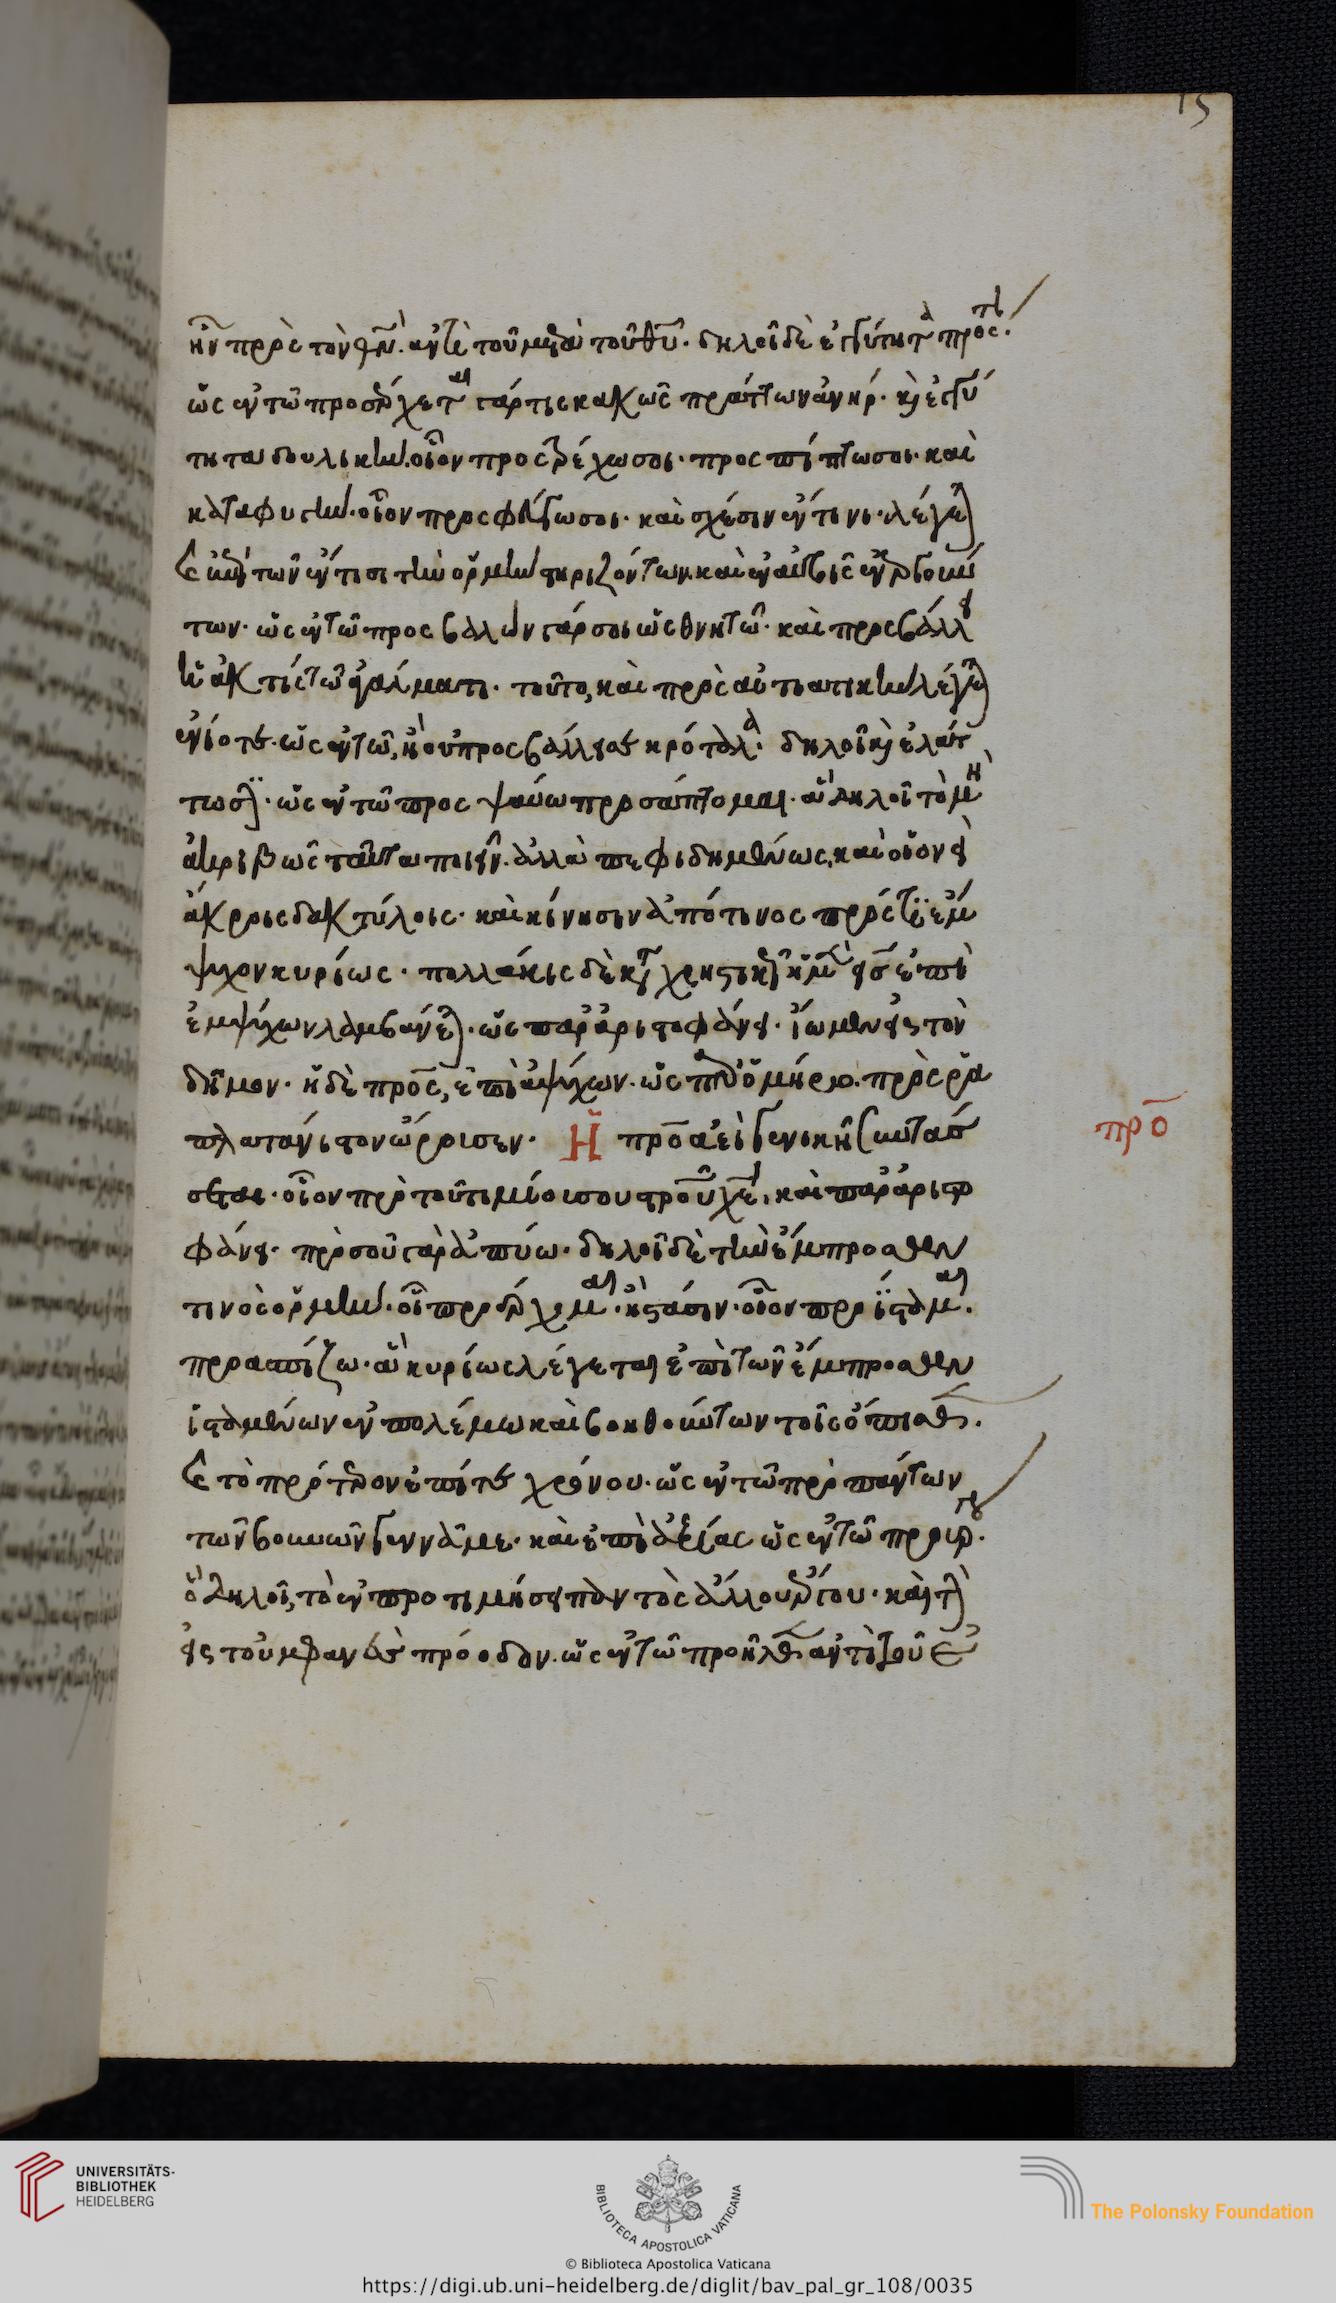 15
ἦν πρὸς τὸν θν. ἀντὶ τοῦ μετὰ τοῦ θυ. δηλοῖ δὲ ἐγγύτητα πρός τι
ὡς ἐν τῶ προσέρχεται γάρ τις κακῶς πράττων ἀνήρ. καὶ ἐγγύ
τητα δουλικήν. οἷον προστρέχω σοι. προσπίπτω σοι. καὶ
καταφυγήν. οἷον προσφεύγω σοι. καὶ σχέσιν ἔν τινι. λέγεται
τῶν ἔν τισι τὴν ὁρμὴν στηριζόντων καὶ ἐν αὐτοῖς
των. ὡς ἐν τῶ προσβαλὼν γάρ σοι ὡς θνητῶ. καὶ προσβάλλει
ἀκτίς τῶ ἀγάλματι. τοῦτο, καὶ πρὸς αἰτιατικὴν λέγεται
ἐνίοτε. ὡς ἐν τῶ, ἢ οὐ προσβάλλουσι κρόταλα. δηλοῖ καὶ ἐλάτ
τωσιν. ὡς ἐν τῶ προσψαύω προσάπτομαι. ἃ δηλοῖ τὸ μὴ
ἀκριβῶς ταῦτα ποιεῖν. ἀλλὰ πεφιδημένως, καὶ οἷον ἐν
ἄκροις δακτύλοις. καὶ κίνησιν ἀπό τινος πρός τι ἔμ
ψυχον κυρίως. πολλάκις δὲ καὶ ἐπὶ
ἐμψύχων λαμβάνεται. ὡς παρ' ἀριστοφάνει. ἴωμεν εἰς τὸν
δῆμον. ἡ δὲ πρός, ἐπὶ ἀψύχων. ὡς παρ' ὁμήρω. πρὸς ῥα
πλατάνιστον ὤρρισεν. Ἡ προ ἀεὶ γενικῆ συντάσ
σεται. οἷον πρὸ τοῦ τιμίου σου καὶ παρ' ἀριστο
φάνει. πρὸ σοῦ γὰρ ἀπύω. δηλοῖ δὲ τὴν ἔμπροσθεν
τινὸς ὁρμήν. οἷον προέρχομαι. ἢ στάσιν. οἷον προΐσταμαι.
προασπίζω. ἃ κυρίως λέγεται ἐπὶ τῶν ἔμπροσθεν
ἱσταμένων ἐν πολέμω καὶ βοηθούντων τοῖς ὄπισθεν.
καὶ τὸ πρότερον ἐπί τε χρόνου. ὡς ἐν τῶ πρὸ πάντων
τῶν βουνῶν γεννᾷ με. καὶ ἐπὶ ἀξίας ὡς ἐν τῶ προκρ.
ὃ δηλοῖ, τὸ ἐν προτιμήσει παντὸς ἄλλου καὶ τὴν
εἰς τοὐμφανὲς πρόοδον. ὡς ἐν τῶ προῆλθεν ἀντὶ τοῦ ἐ
προ
UNIVERSITÄTS-
BIBLIOTHEK
HEIDELBERG
BIBLIOTECA APOSTOLICA VATICANA
The Polonsky Foundation
© Biblioteca Apostolica Vaticana
https://digi.ub.uni-heidelberg.de/diglit/bav_pal_gr_108/0035